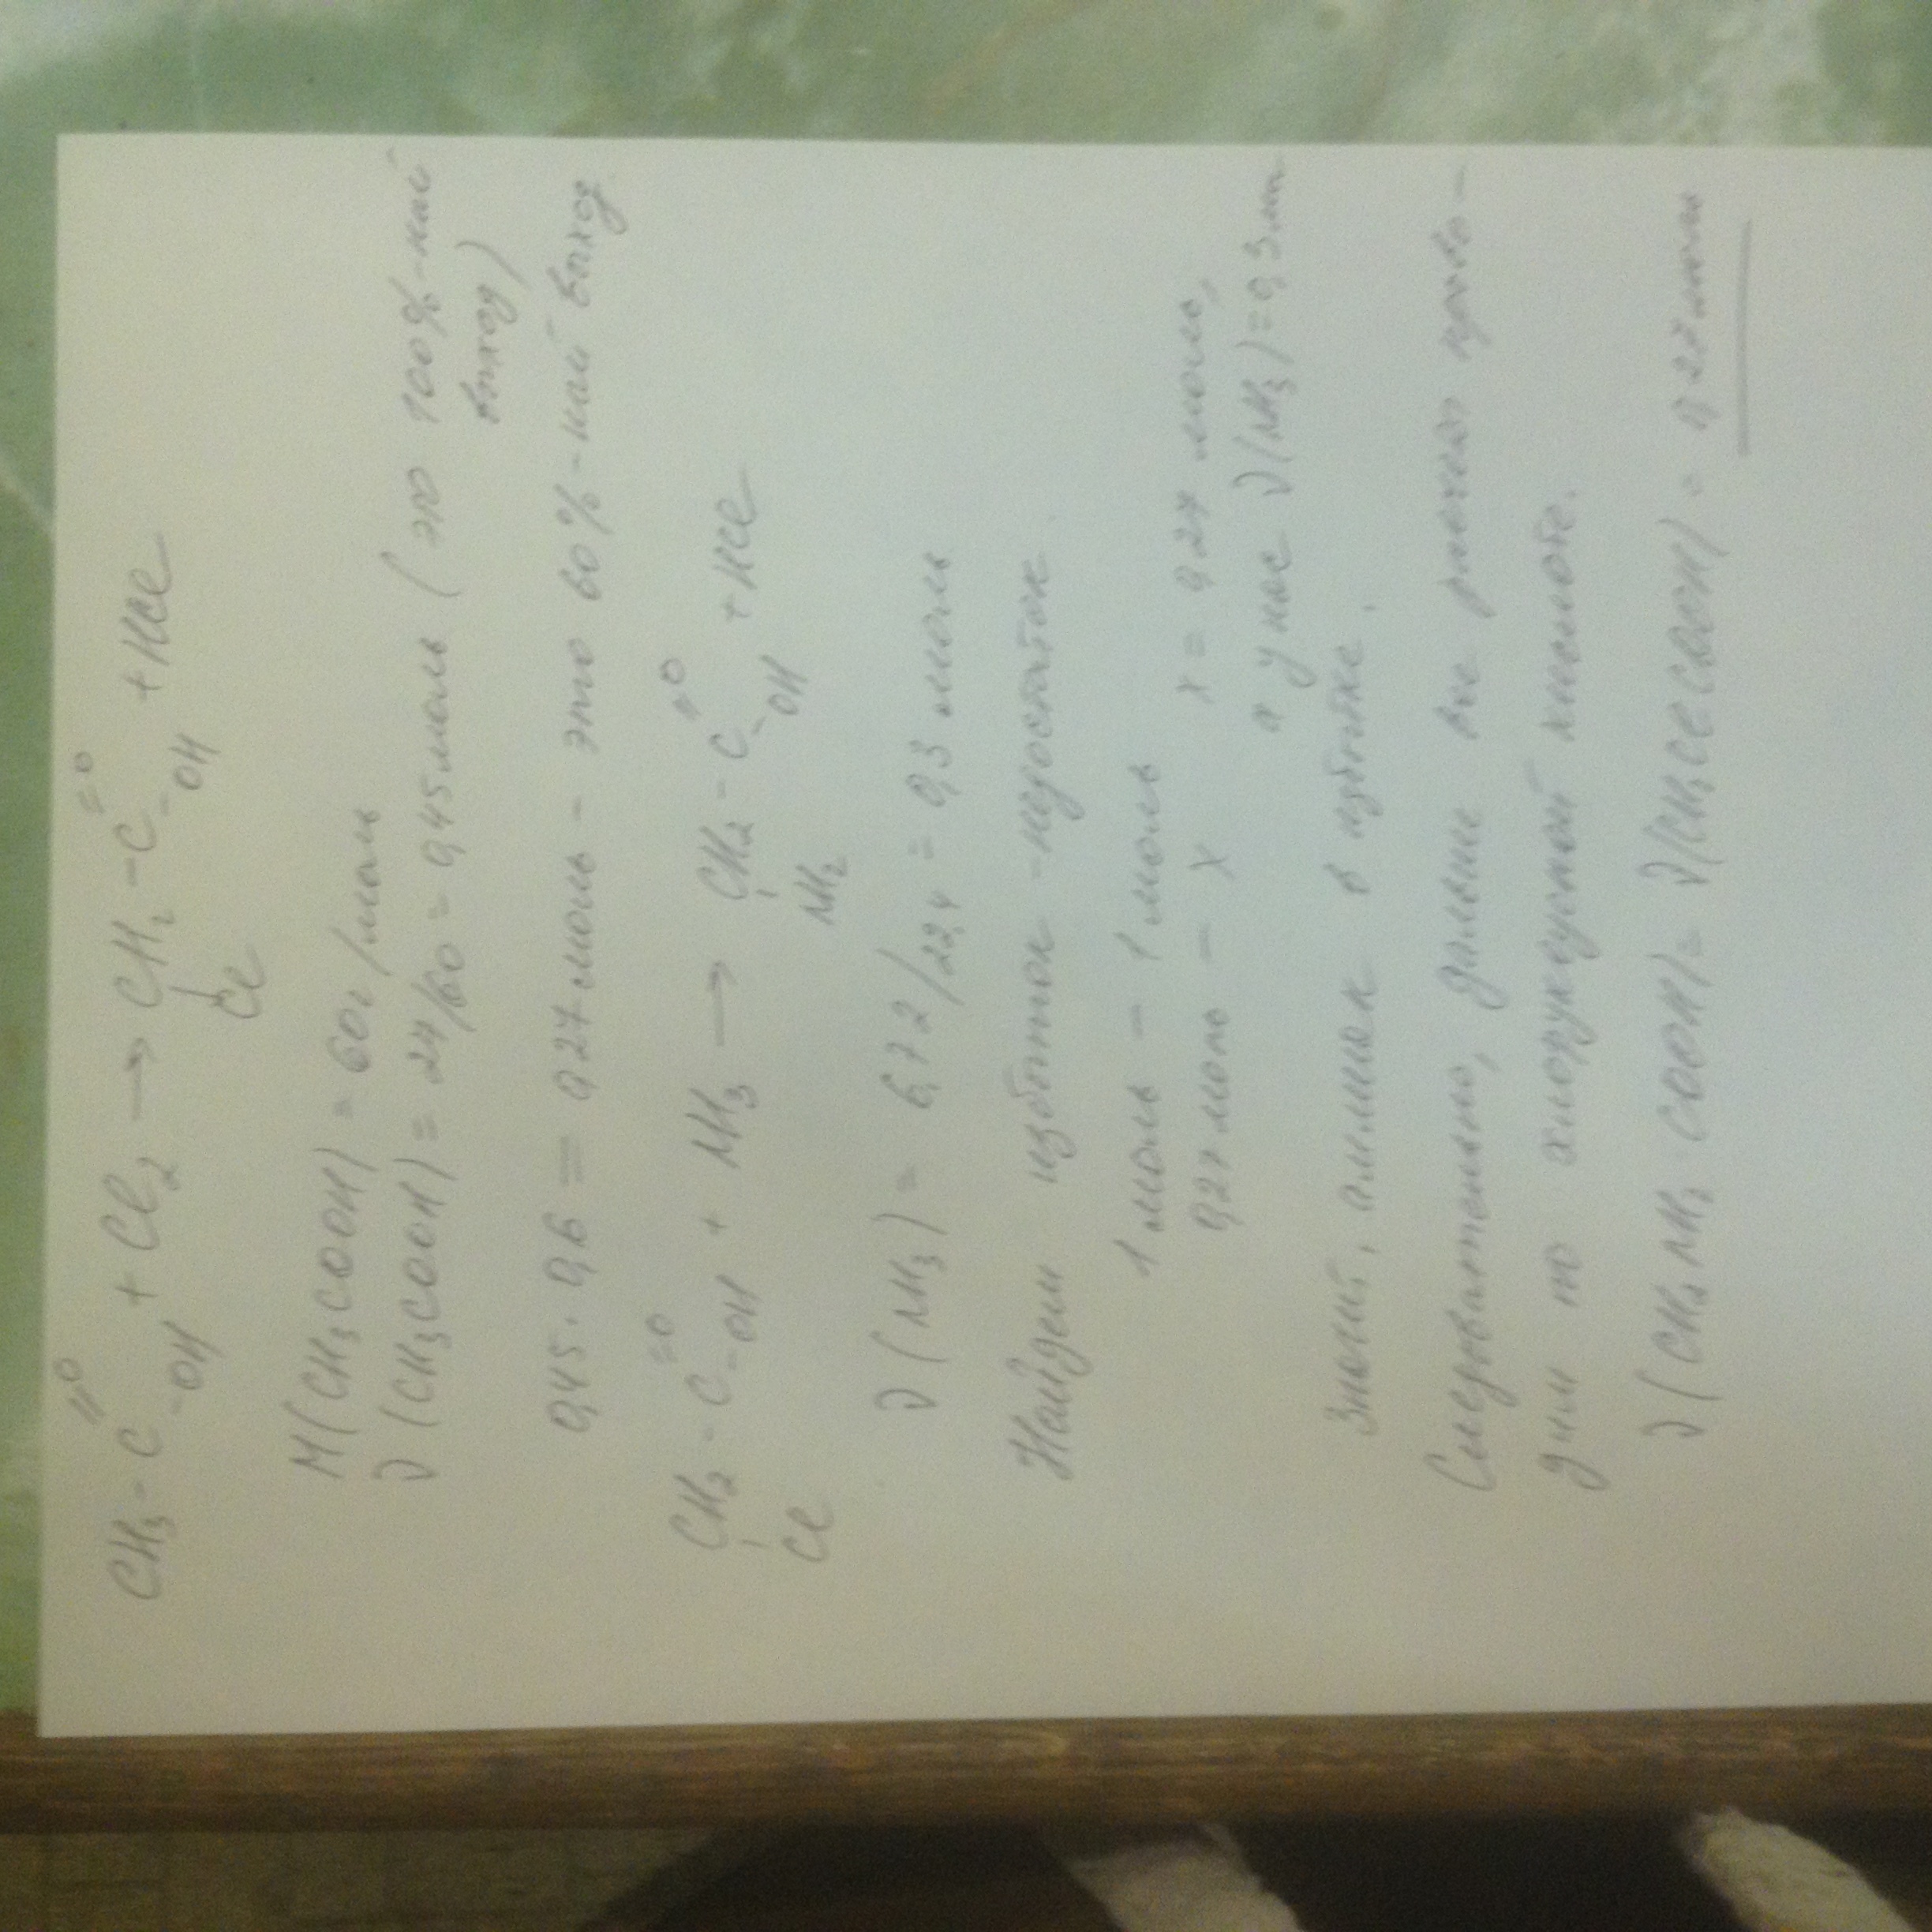 CH₃-C=O-OH + Cl₂ → CH₂-C=O-OH + HCl
Cl
M(CH₃COOH) = 60г/моль
ν(CH₃COOH) = 27/60 = 0,45моль (это 100%-ный
выход)
0,45 · 0,6 = 0,27моль - это 60%-ный выход
CH₂-C=O-OH + NH₃ → CH₂-C=O-OH + HCl
Cl NH₂
ν(NH₃) = 6,72/22,4 = 0,3 моль
Найдем избыток-недостаток
1 моль - 1 моль
0,27 моль - x x = 0,27 моль,
а у нас ν(NH₃)=0,3 моль
Значит, аммиак в избытке.
Следовательно, дальше все расчеты прово-
дим по хлоруксусной кислоте.
ν(CH₂NH₂COOH) = ν(CH₂ClCOOH) = 0,27моль